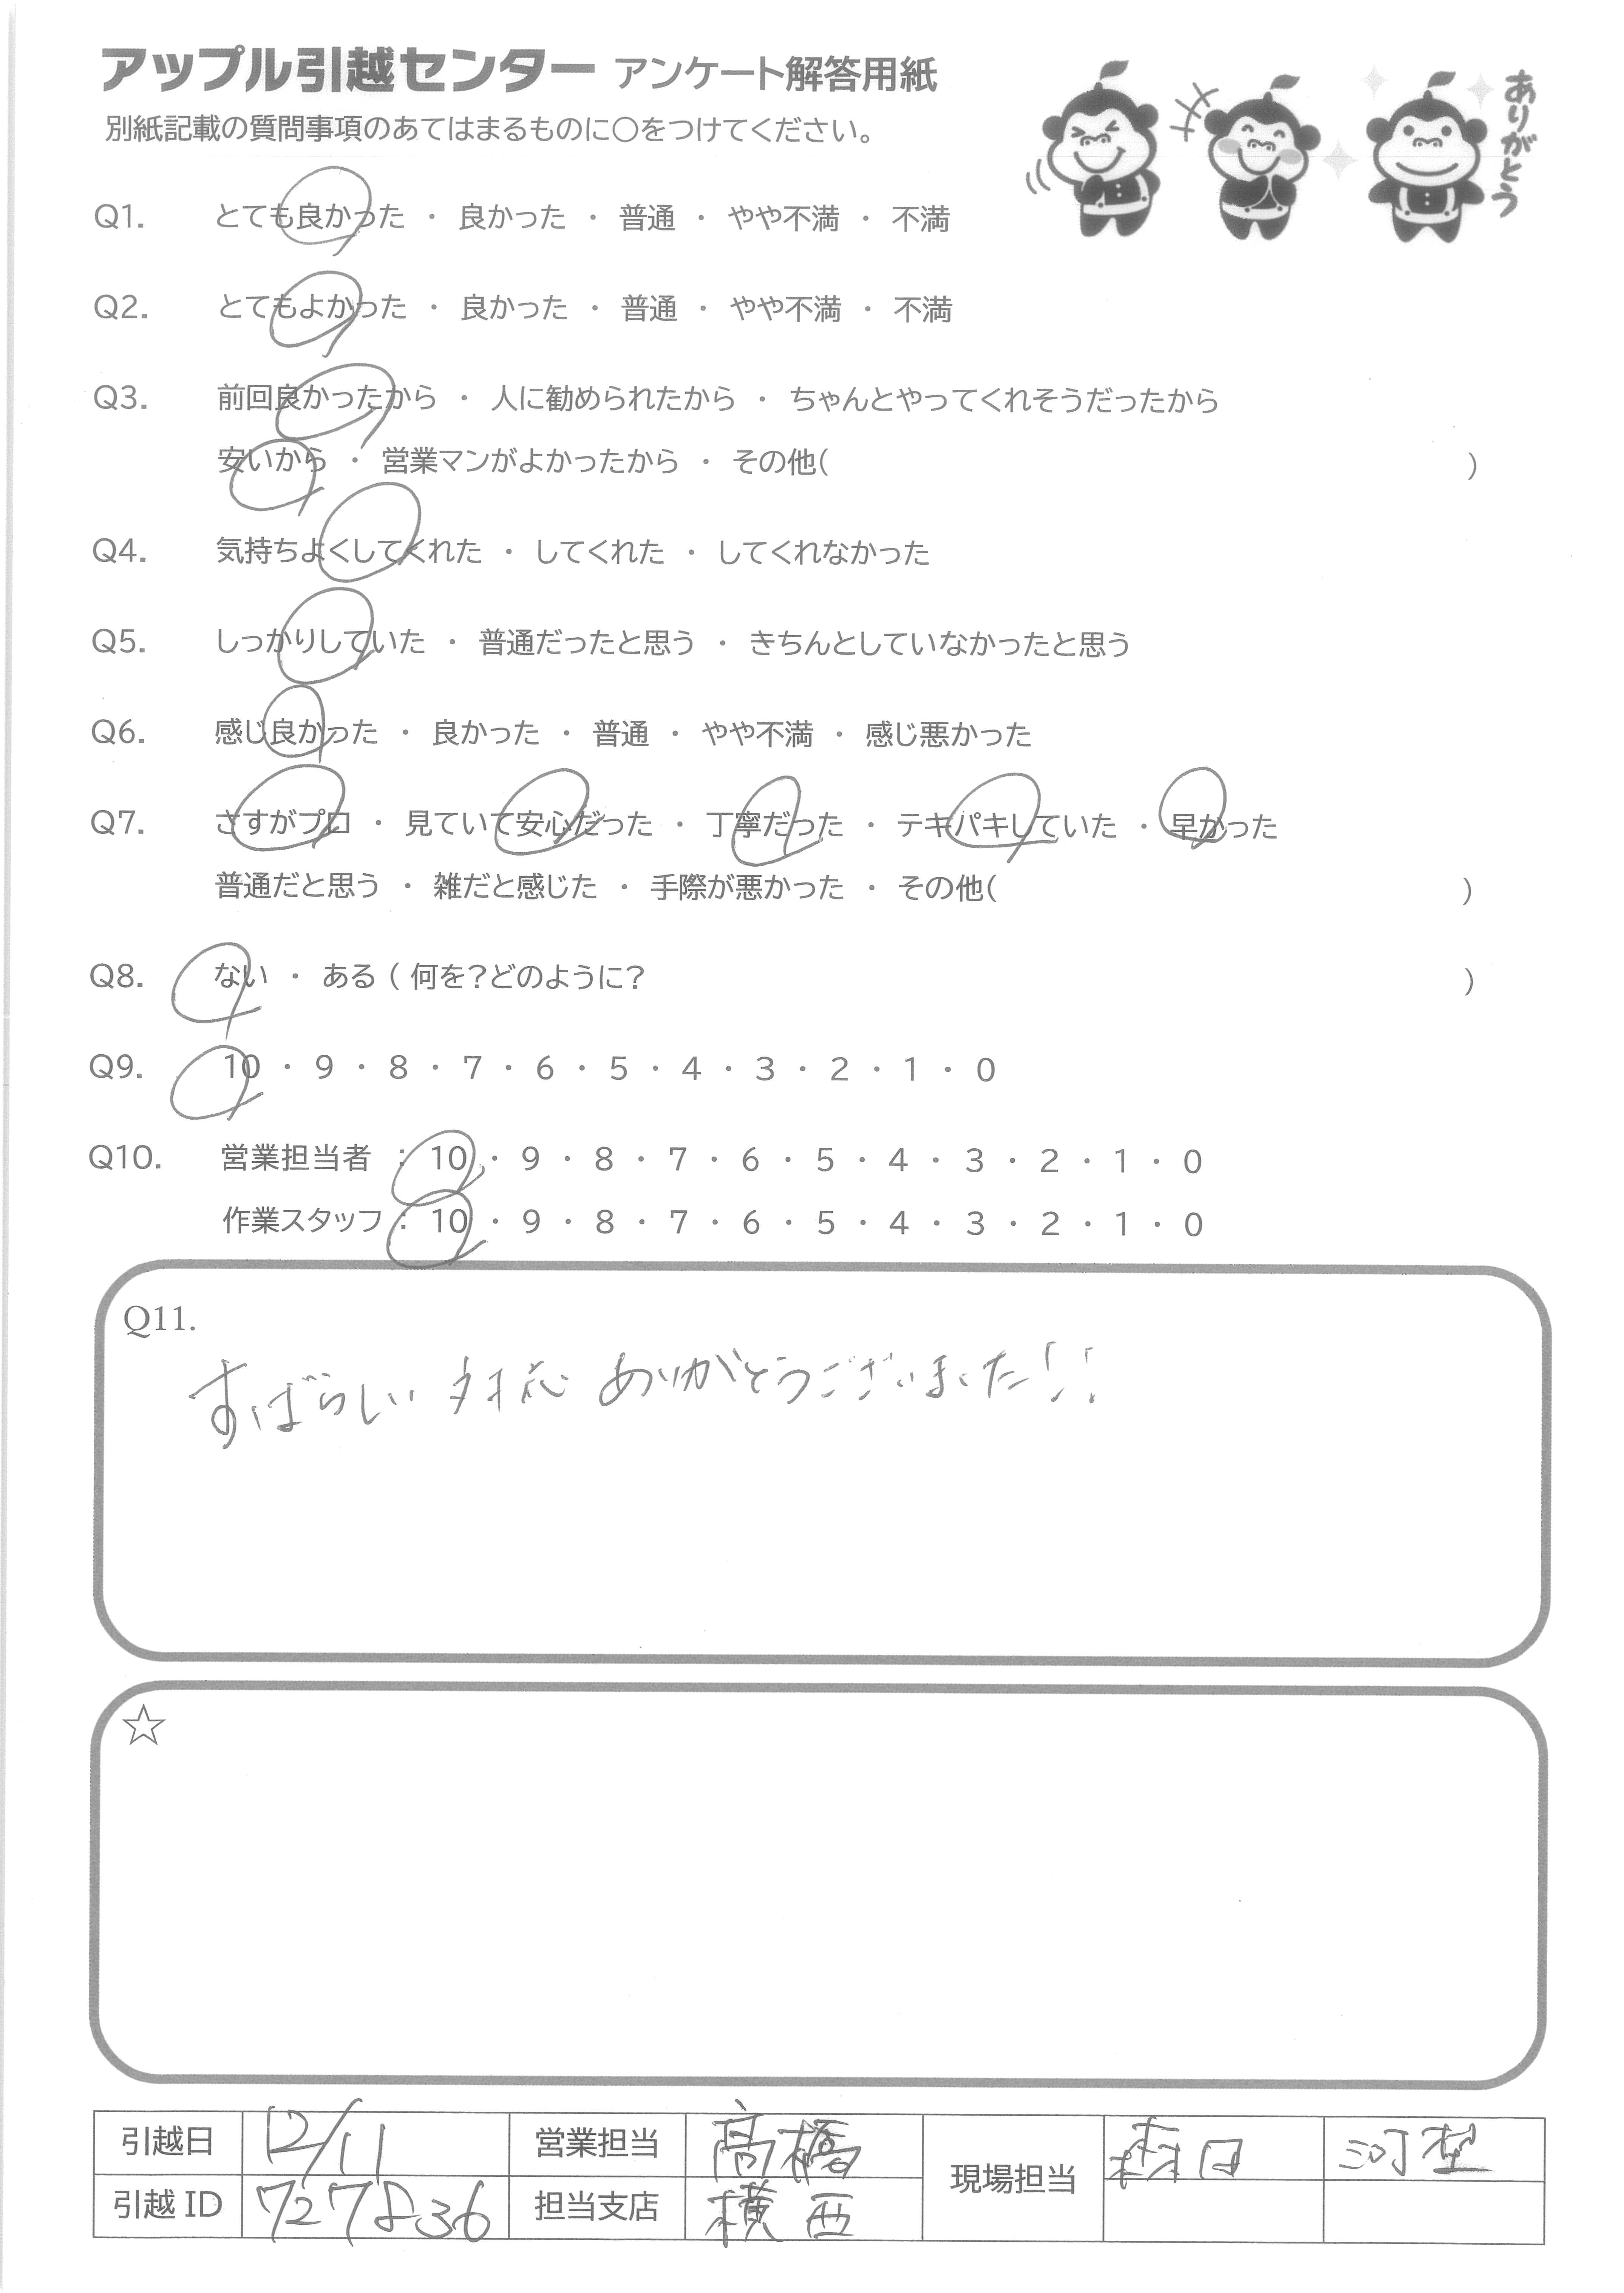 アップル引越センター アンケート解答用紙
別紙記載の質問事項のあてはまるものに○をつけてください。
ありがとう
Q1. とても良かった ・ 良かった ・ 普通 ・ やや不満 ・ 不満
Q2. とてもよかった ・ 良かった ・ 普通 ・ やや不満 ・ 不満
Q3. 前回良かったから ・ 人に勧められたから ・ ちゃんとやってくれそうだったから
安いから ・ 営業マンがよかったから ・ その他( )
Q4. 気持ちよくしてくれた ・ してくれた ・ してくれなかった
Q5. しっかりしていた ・ 普通だったと思う ・ きちんとしていなかったと思う
Q6. 感じ良かった ・ 良かった ・ 普通 ・ やや不満 ・ 感じ悪かった
Q7. さすがプロ ・ 見ていて安心だった ・ 丁寧だった ・ テキパキしていた ・ 早かった
普通だと思う ・ 雑だと感じた ・ 手際が悪かった ・ その他( )
Q8. ない ・ ある ( 何を?どのように? )
Q9. 10 ・ 9 ・ 8 ・ 7 ・ 6 ・ 5 ・ 4 ・ 3 ・ 2 ・ 1 ・ 0
Q10. 営業担当者 : 10 ・ 9 ・ 8 ・ 7 ・ 6 ・ 5 ・ 4 ・ 3 ・ 2 ・ 1 ・ 0
作業スタッフ : 10 ・ 9 ・ 8 ・ 7 ・ 6 ・ 5 ・ 4 ・ 3 ・ 2 ・ 1 ・ 0
Q11.
すばらしい対応ありがとうございました!!
☆
引越日 12/11 営業担当 高橋 現場担当 森田
引越ID 727836 担当支店 横西